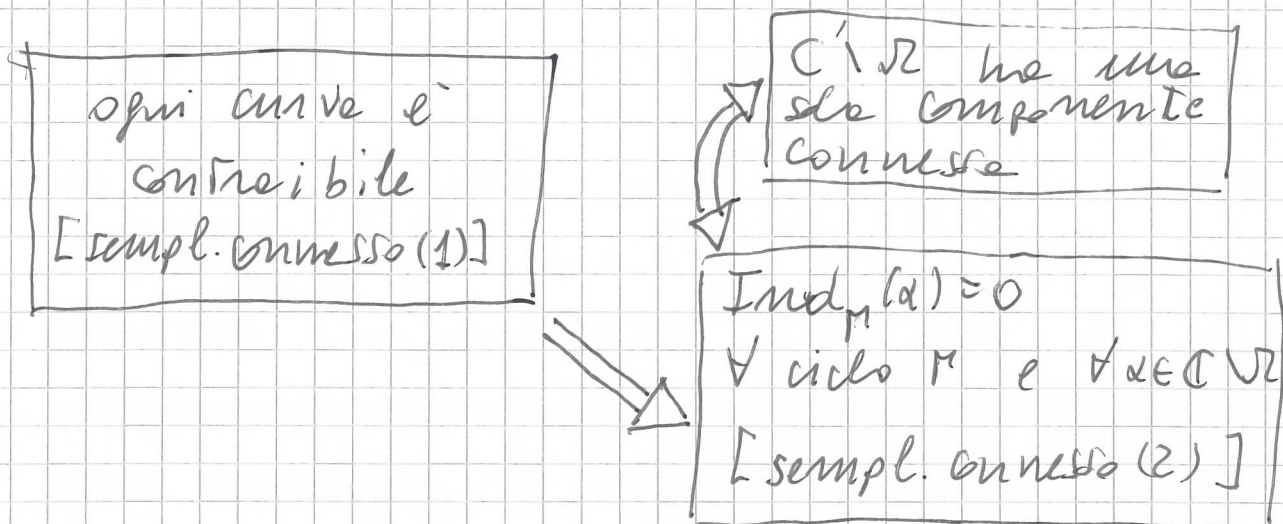 ogni curva è
contraibile
[sempl. connesso (1)]
C \ Ω ha una
sola componente
connessa
Ind_Γ(α) = 0
∀ ciclo Γ e ∀ α ∈ ℂ \ Ω
[sempl. connesso (2)]